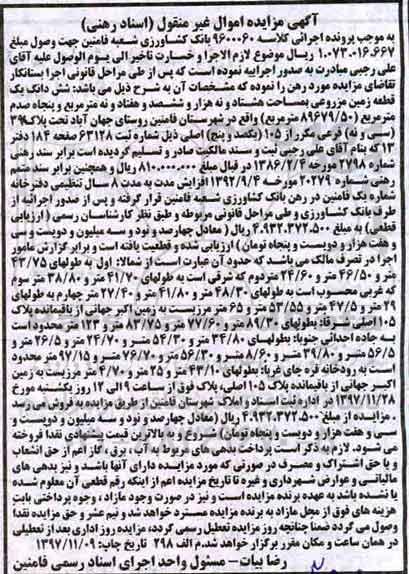 آگهی مزایده اموال غیر منقول (اسناد رهنی)
به موجب پرونده اجرائی کلاسه ۹۶۰۰۰۶۰ بانک کشاورزی شعبه فامنین جهت وصول مبلغ
۱.۰۷۳.۰۱۶.۶۶۷ ریال موضوع لازم الاجرا و خسارت تاخیر الی یوم الوصول علیه آقای
علی رجبی مبادرت به صدور اجراییه نموده است که پس از طی مراحل قانونی اجرا بستانکار
تقاضای مزایده مورد رهن را نموده که مشخصات آن به شرح ذیل می باشد: شش دانگ یک
قطعه زمین مزروعی بمساحت هشتاد و نه هزار و ششصد و هفتاد و نه مترمربع و پنجاه صدم
مترمربع (۸۹۶۷۹/۵۰ مترمربع) واقع در شهرستان فامنین روستای جهان آباد تحت پلاک ۳۹
(سی و نه) فرعی مکرر از ۱۰۵ (یکصد و پنج) اصلی ذیل شماره ثبت ۶۳۱۲۸ صفحه ۱۸۴ دفتر
۱۳ که بنام آقای علی رجبی ثبت و سند مالکیت صادر و تسلیم گردیده است برابر سند رهنی
شماره ۲۷۹۸ مورخه ۱۳۸۶/۲/۴ در قبال مبلغ ۸۱۰.۰۰۰.۰۰۰ ریال و همچنین برابر سند متمم
رهنی شماره ۲۰۲۷۹ مورخه ۱۳۹۲/۹/۴ افزایش مدت به مدت ۸ سال تنظیمی دفترخانه
شماره یک فامنین در رهن بانک کشاورزی شعبه فامنین قرار گرفته و پس از صدور اجرائیه از
طرف بانک کشاورزی و طی مراحل قانونی مربوطه و طبق نظر کارشناسان رسمی (ارزیابی
قطعی) به مبلغ ۴.۹۳۲.۳۷۲.۵۰۰ ریال (معادل چهارصد و نود و سه میلیون و دویست و سی
و هفت هزار و دویست و پنجاه تومان) ارزیابی شده و قطعیت یافته است و برابر گزارش مامور
اجرا در تصرف مالک می باشد که حدود آن عبارت است از شمالا: اول به طولهای ۴۳/۷۵
متر و ۴۶/۵۰ متر و ۲۴/۶۰ متر دوم که شرقی است به طولهای ۴۱/۷۰ متر و ۳۸/۸۰ متر سوم
که غربی محسوب است به طولهای ۴۸/۳۰ متر و ۴۱/۸۰ متر و ۲۷/۴۰ متر چهارم به طولهای
۲۹ متر و ۴۷/۵ متر و ۵۳/۵۵ متر و ۶۵ متر مرزیست به زمین اکبر جهانی از باقیمانده پلاک
۱۰۵ اصلی شرقا: بطولهای ۸۹/۳۰ متر و ۷۷/۶۰ متر و ۸۳/۷۵ متر و ۱۲۳ متر محدود است
به جاده احداثی جنوبا: بطولهای ۳۴/۸۰ متر و ۵۴/۳۰ متر و ۲۴/۷۰ متر و ۲۶/۵ متر و
۵۶/۵ متر و ۳۹/۸۰ متر و ۸/۶۰ متر و ۵۶/۳۰ متر و ۷۶/۷۰ متر و ۹۷/۱۵ متر محدود
است به رودخانه قره چای غربا: بطولهای ۴۳/۱۰ متر و ۲۵ متر و ۴/۷۰ متر مرزیست به زمین
اکبر جهانی از باقیمانده پلاک ۱۰۵ اصلی، پلاک فوق از ساعت ۹ الی ۱۲ روز یکشنبه مورخ
۱۳۹۷/۱۱/۲۸ در اداره ثبت اسناد و املاک شهرستان فامنین از طریق مزایده به فروش می رسد
. مزایده از مبلغ ۴.۹۳۲.۳۷۲.۵۰۰ ریال (معادل چهارصد و نود و سه میلیون و دویست و
سی و هفت هزار و دویست و پنجاه تومان) شروع و به بالاترین قیمت پیشنهادی نقدا فروخته
می شود. لازم به ذکر است پرداخت بدهی های مربوط به آب ، برق ، گاز اعم از حق انشعاب
و یا حق اشتراک و مصرف در صورتی که مورد مزایده دارای آنها باشد و نیز بدهی های
مالیاتی و عوارض شهرداری و غیره تا تاریخ مزایده اعم از اینکه رقم قطعی آن معلوم شده
یا نشده باشد به عهده برنده مزایده است و نیز در صورت وجود مازاد ، وجوه پرداختی بابت
هزینه های فوق از محل مازاد به برنده مزایده مسترد خواهد شد و نیم عشر و حق مزایده نقدا
وصول می گردد ضمنا چنانچه روز مزایده تعطیل رسمی گردد، مزایده روز اداری بعد از تعطیلی
در همان ساعت و مکان مقرر برگزار خواهد شد. م الف ۲۹۸ تاریخ چاپ: ۱۳۹۷/۱۱/۰۹
رضا بیات- مسئول واحد اجرای اسناد رسمی فامنین